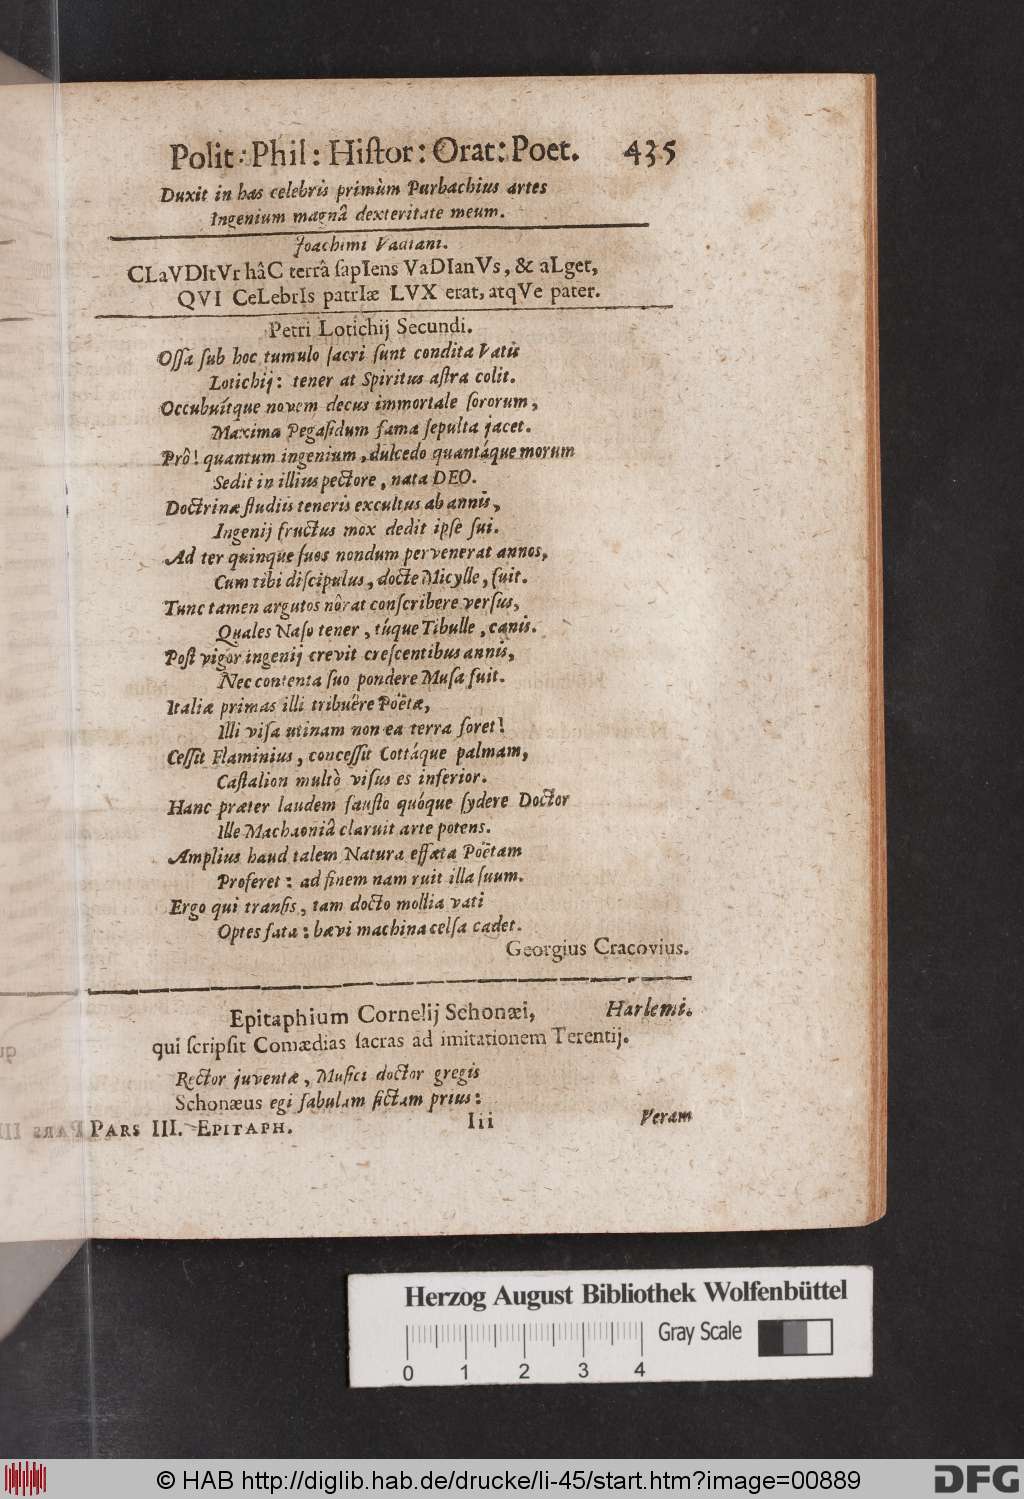 Polit: Phil: Hiſtor: Orat: Poet. 435
Duxit in has celebris primùm Purbachius artes
Ingenium magnâ dexteritate meum.
Joachimi Vadiani.
CLaVDItVr hâC terrâ ſapIens VaDIanVs, & aLget,
QVI CeLebrIs patrIæ LVX erat, atqVe pater.
Petri Lotichij Secundi.
Oſſa ſub hoc tumulo ſacri ſunt condita Vatis
Lotichij: tener at Spiritus aſtra colit.
Occubuítque novem decus immortale ſororum,
Maxima Pegaſidum fama ſepulta jacet.
Prô! quantum ingenium, dulcedo quantáque morum
Sedit in illius pectore, nata DEO.
Doctrinæ ſtudiis teneris excultus ab annis,
Ingenij fructus mox dedit ipſe ſui.
Ad ter quinque ſuos nondum pervenerat annos,
Cum tibi diſcipulus, docte Micylle, fuit.
Tunc tamen argutos nôrat conſcribere verſus,
Quales Naſo tener, túque Tibulle, canis.
Poſt vigor ingenij crevit creſcentibus annis,
Nec contenta ſuo pondere Muſa fuit.
Italiæ primas illi tribuêre Poëtæ,
Illi viſa utinam non ea terra foret!
Ceſſit Flaminius, conceſſit Cottáque palmam,
Caſtalion multò viſus es inferior.
Hanc præter laudem fauſto quóque ſydere Doctor
Ille Machaoniâ claruit arte potens.
Amplius haud talem Natura effæta Poëtam
Proferet: ad finem nam ruit illa ſuum.
Ergo qui tranſis, tam docto mollia vati
Optes fata: hævi machina celſa cadet.
Georgius Cracovius.
Epitaphium Cornelij Schonæi, Harlemi.
qui ſcripſit Comædias ſacras ad imitationem Terentij.
Rector juventæ, Muſici doctor gregis
Schonæus egi fabulam fictam prius:
PARS III. EPITAPH. Iii Veram
Herzog August Bibliothek Wolfenbüttel
Gray Scale
0 1 2 3 4
© HAB http://diglib.hab.de/drucke/li-45/start.htm?image=00889
DFG